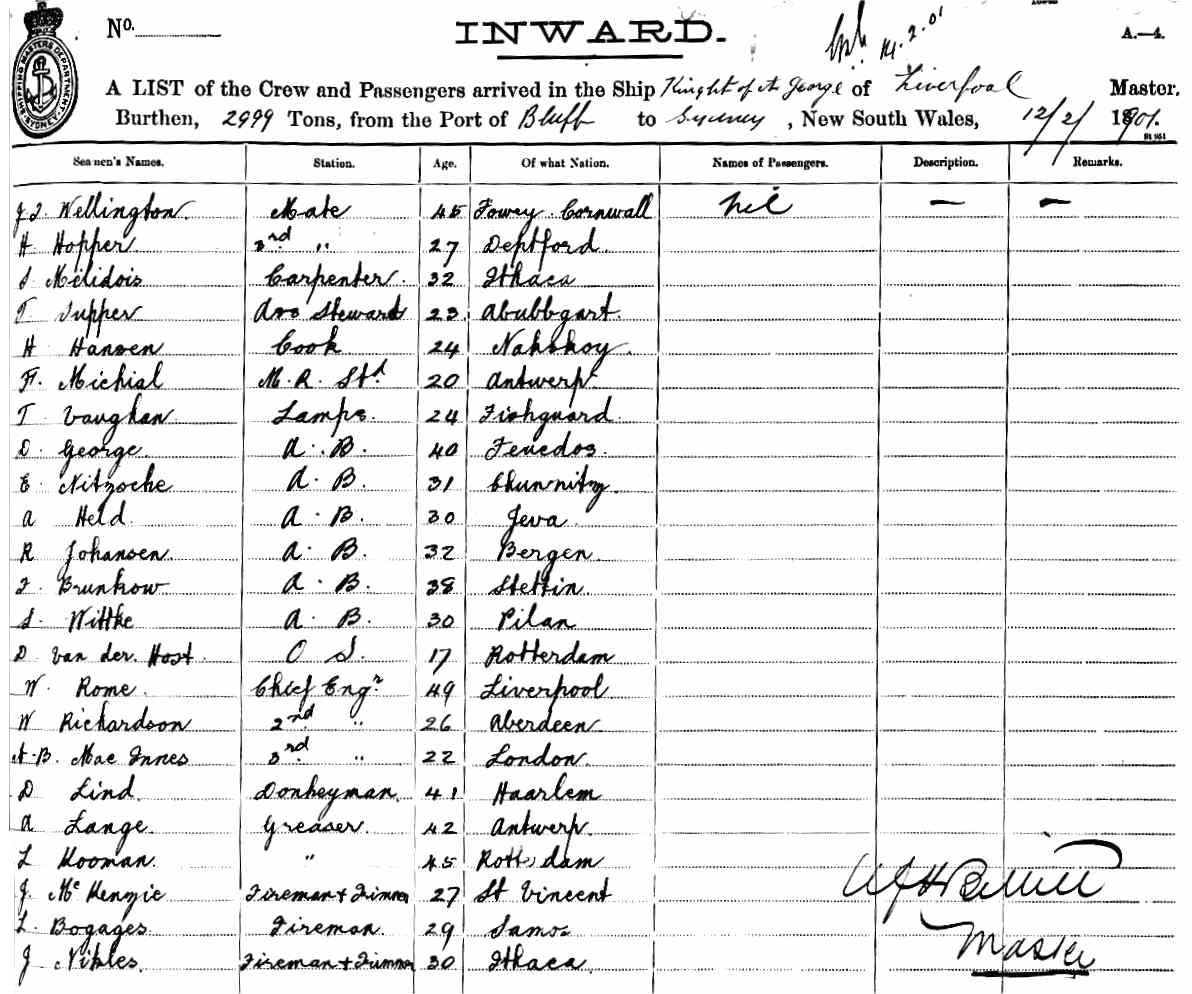 No.
INWARD.
14.2.01
A.—4.
SHIPPING MASTERS DEPARTMENT SYDNEY
A LIST of the Crew and Passengers arrived in the Ship Knight of St George of Liverpool Master.
Burthen, 2999 Tons, from the Port of Bluff to Sydney, New South Wales, 12/2/ 1901.
Seamen's Names. Station. Age. Of what Nation. Names of Passengers. Description. Remarks.
Wellington. Mate 45 Fowey Cornwall nil — —
H Hopper 27 Deptford
Melidois Carpenter. 32 Ithaca
T. Tupper Steward 23
H Hansen Cook 24 Nakskoy.
Michial M. R. Std 20 Antwerp
T Vaughan Lamps. 24 Fishguard
D. George. A. B. 40 Tenedos.
E Nitzsche A. B. 31
A Held. A. B. 30 Jeva
R Johansen A. B. 32 Bergen
Brunkow A. B. 38 Stettin.
Wittke A. B. 30 Pilan
D van der. Host. O S. 17 Rotterdam
W. Rome. Chief Engr 49 Liverpool
W Richardson 2nd " 26 Aberdeen
Mac Innes 3rd " 22 London.
D Lind. Donkeyman. 41 Haarlem
A Lange. Greaser. 42 Antwerp.
L Kooman. " 45 Rotterdam
J. McKenzie Fireman + Trimmer 27 St Vincent
L. Bogages Fireman. 29 Samos
J Nikles. Fireman + Trimmer 30 Ithaca.
Master